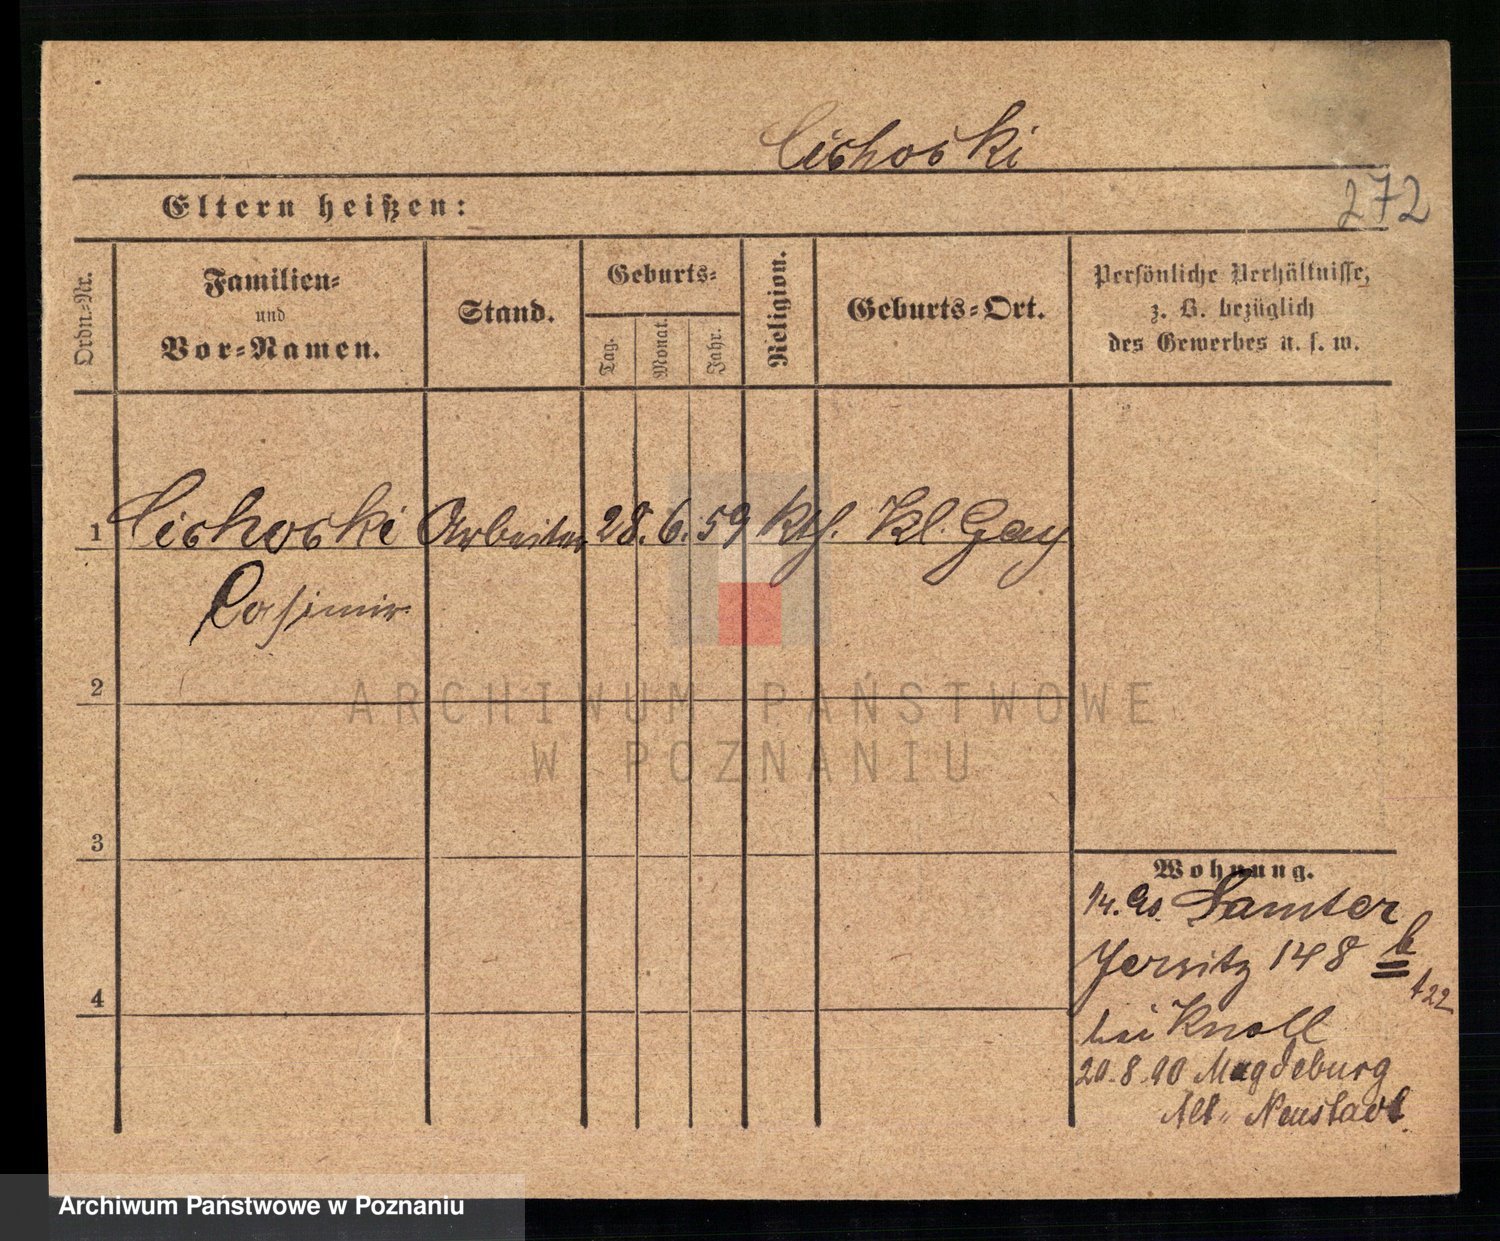 Cichocki
272
Eltern heißen:
Ordn.-Nr.
Familien-
und
Vor-Namen.
Stand.
Geburts-
Tag.
Monat.
Jahr.
Religion.
Geburts-Ort.
Persönliche Verhältnisse,
z. B. bezüglich
des Gewerbes u. s. w.
1 Cichocki Arbeiter 28. 6. 59 kth. Kl. Gay
Casimir
2
ARCHIWUM PAŃSTWOWE
W POZNANIU
3
Wohnung.
Samter
Jersitz 148 b
bei Knoll
20.8.90 Magdeburg
Alt-Neustadt
4
Archiwum Państwowe w Poznaniu